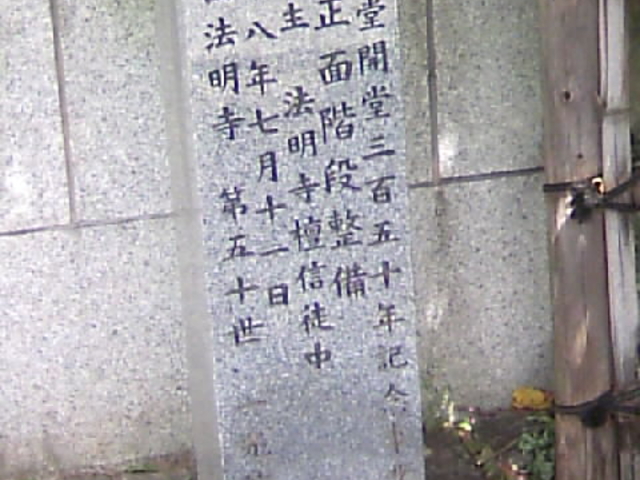 堂開堂三百五十年記念
正面階段整備
主 法明寺檀信徒中
八年七月十一日
法明寺 第五十世